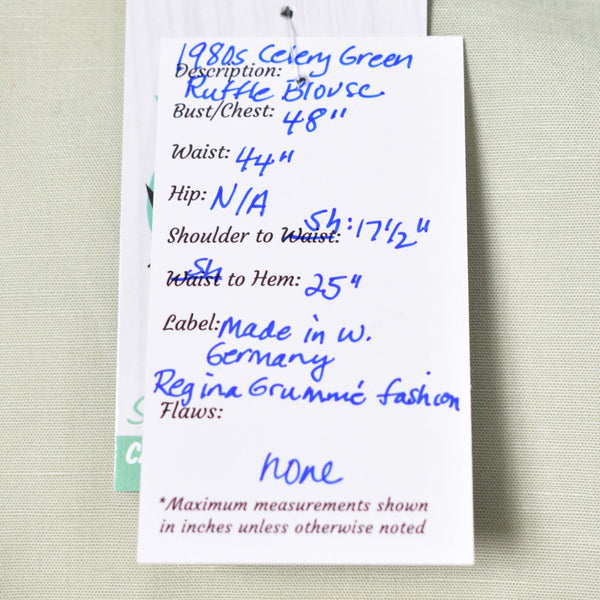 1980s Celery Green
Description:
Ruffle Blouse
Bust/Chest: 48"
Waist: 44"
Hip: N/A
Shoulder to Waist: Sh: 17 1/2"
Waist Sh to Hem: 25"
Label: Made in W.
Germany
Regina Grummé fashion
Flaws:
none
*Maximum measurements shown
in inches unless otherwise noted